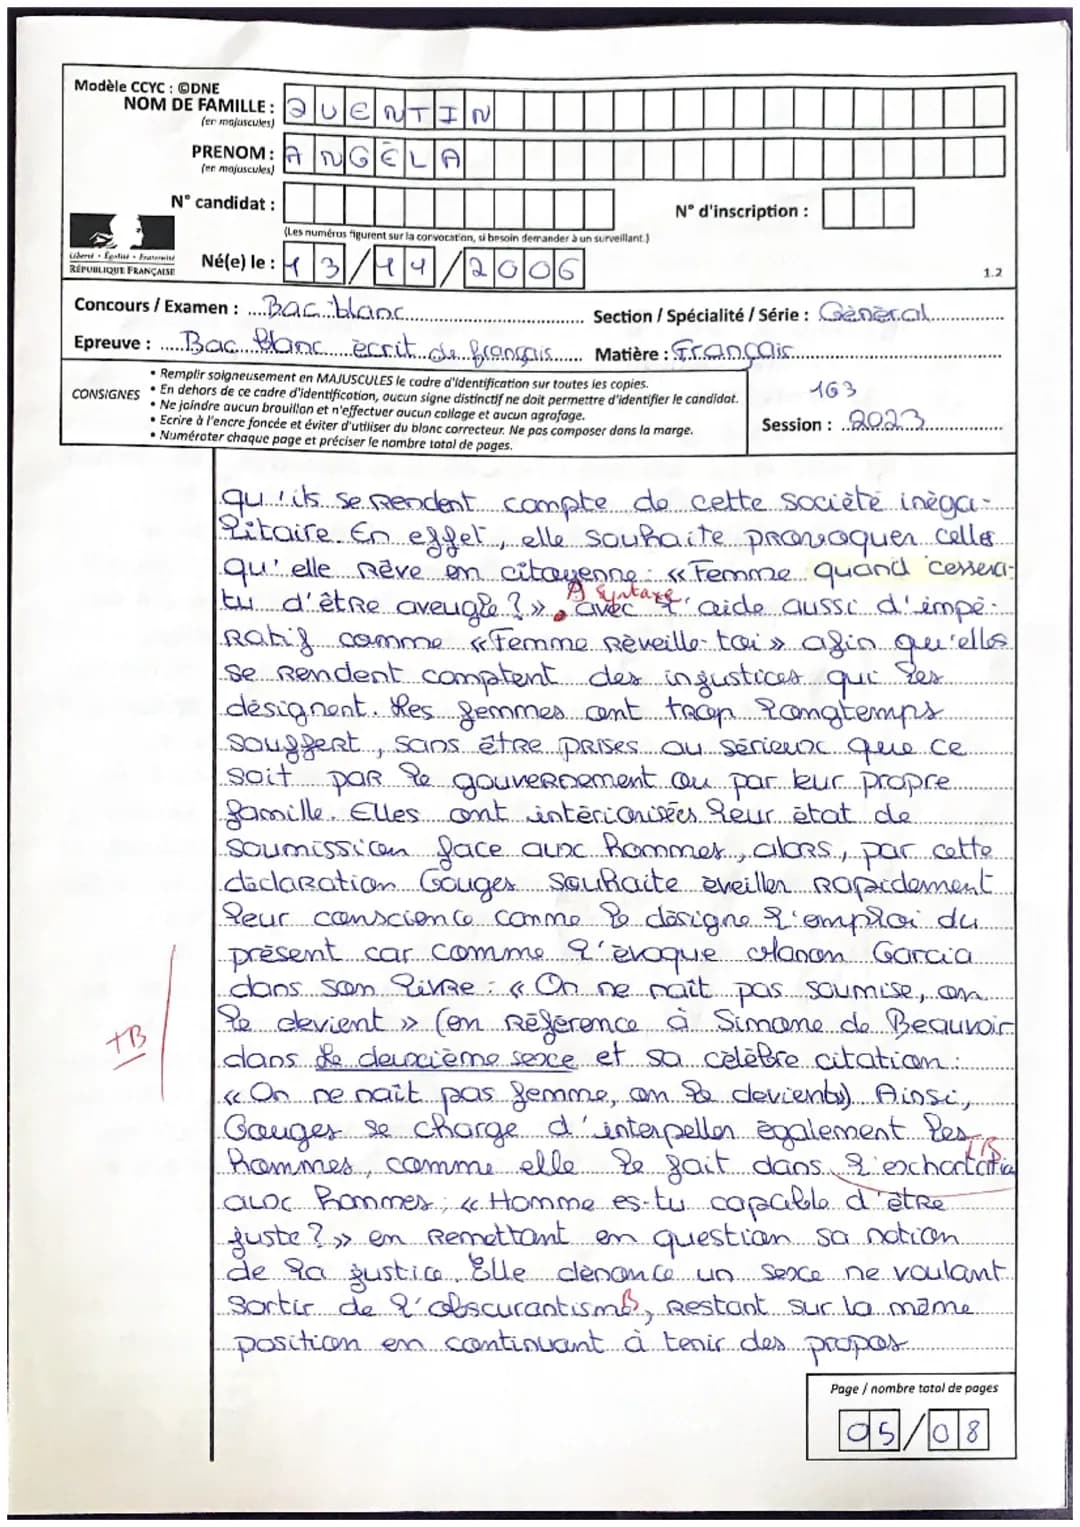 Modèle CCYC : ©DNE
NOM DE FAMILLE : QUENTIN
(en majuscules)
PRENOM : ANGÈLA
(en majuscules)
N° candidat :
N° d'inscription :
(Les numéros figurent sur la convocation, si besoin demander à un surveillant.)
Liberté • Égalité • Fraternité
RÉPUBLIQUE FRANÇAISE
Né(e) le : 13/11/2006
1.2
Concours / Examen : Bac blanc
Section / Spécialité / Série : Général
Epreuve : Bac blanc écrit de français
Matière : Français
CONSIGNES
• Remplir soigneusement en MAJUSCULES le cadre d'identification sur toutes les copies.
• En dehors de ce cadre d'identification, aucun signe distinctif ne doit permettre d'identifier le candidat.
• Ne joindre aucun brouillon et n'effectuer aucun collage et aucun agrafage.
• Ecrire à l'encre foncée et éviter d'utiliser du blanc correcteur. Ne pas composer dans la marge.
• Numéroter chaque page et préciser le nombre total de pages.
163
Session : 2023
qu'ils se rendent compte de cette société inéga-
litaire. En effet, elle souhaite provoquer celles
qu'elle rêve en citoyenne : « Femme quand cessera-
A Syntaxe
tu d'être aveugle ? », avec l'aide aussi d'impé-
ratif comme « Femme réveille-toi » afin qu'elles
se rendent comptent des injustices qui les
désignent. Les femmes ont trop longtemps
souffert, sans être prises au sérieux que ce
soit par le gouvernement ou par leur propre
famille. Elles ont intériorisées leur état de
soumission face aux hommes, alors, par cette
déclaration Gouges souhaite éveiller rapidement
leur conscience comme le désigne l'emploi du
présent car comme l'évoque Manon Garcia
dans son livre : « On ne naît pas soumise, on
le devient » (en référence à Simone de Beauvoir
TB
dans Le deuxième sexe et sa célèbre citation :
« On ne naît pas femme, on le devient»). Ainsi,
Gouges se charge d'interpeller également les
TB
hommes, comme elle le fait dans l'exhortation
aux hommes : « Homme es-tu capable d'être
juste ? » en remettant en question sa notion
de la justice. Elle dénonce un sexe ne voulant
sortir de l'obscurantisme, restant sur la même
position en continuant à tenir des propos
Page / nombre total de pages
05/08